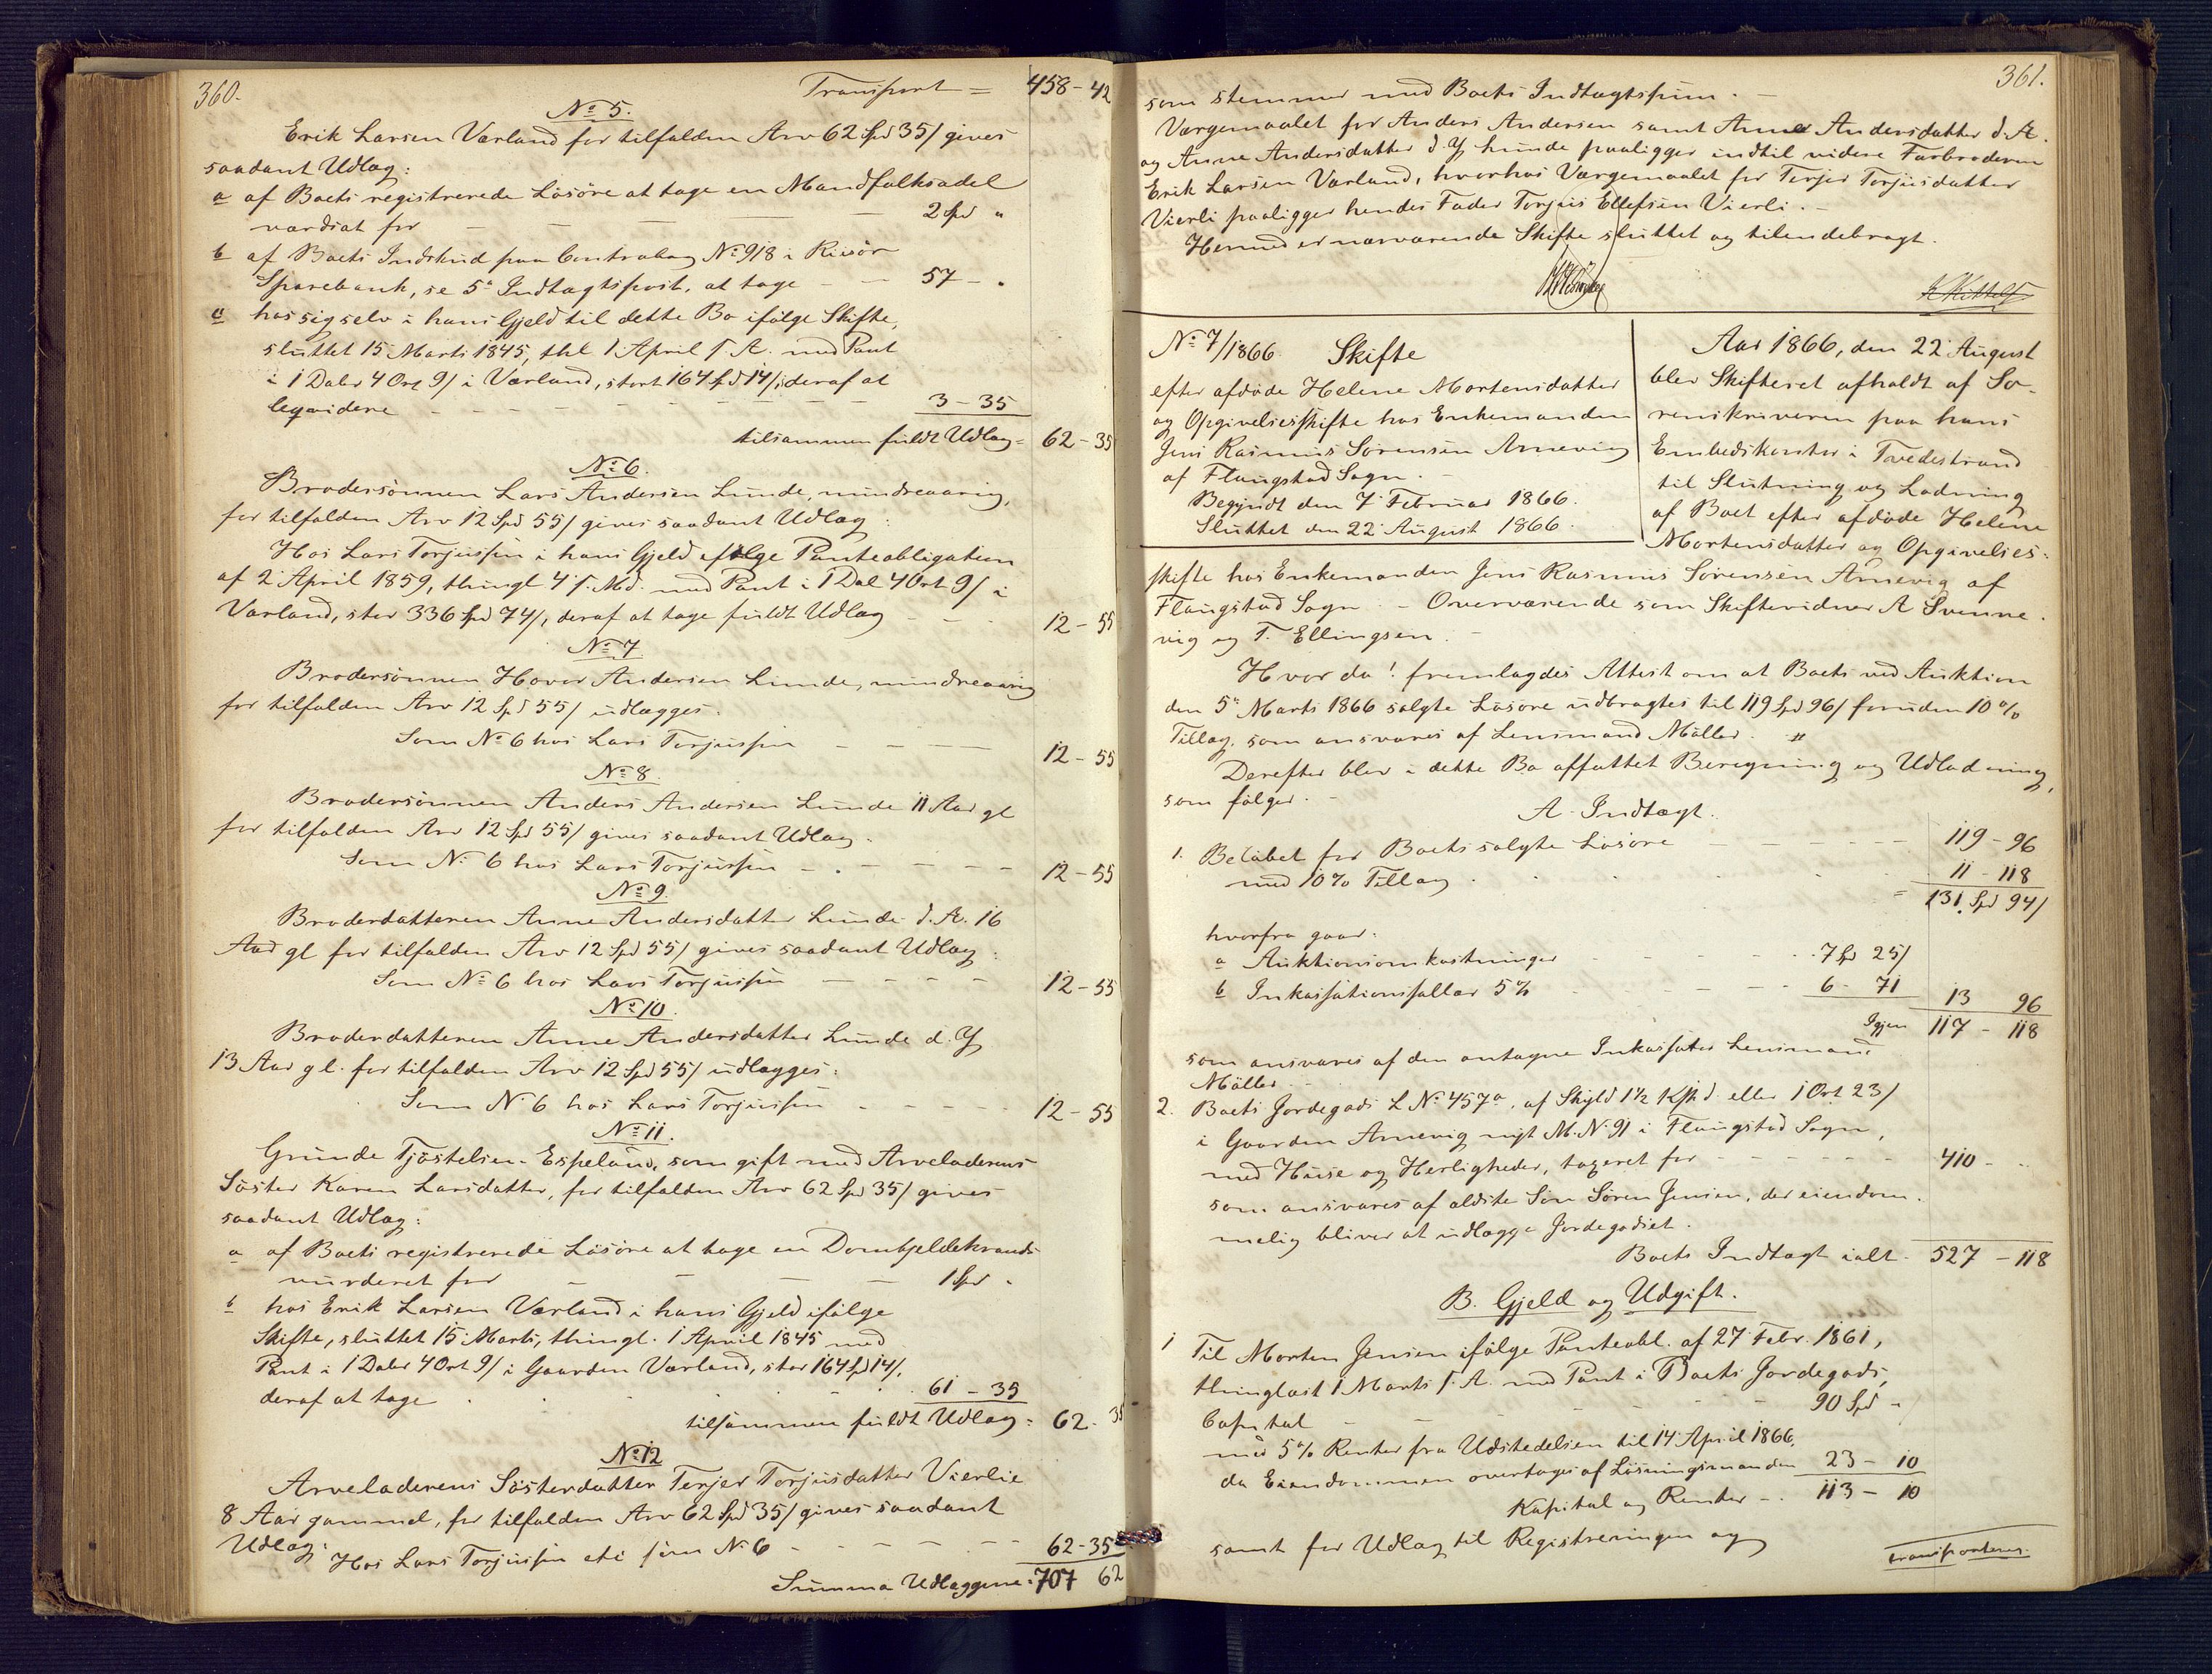 360.
Transport = 458-42
No 5.
Erik Larsen Værland for tilfalden Arv 62 Spd 35/ gives
saadant Udlæg:
a af Boets registrerede Løsøre at tage en Mandfolksadel
værdsat for 2 Spd "
b af Boets Indskud paa Contrabog No 918 i Risør
Sparebank, se 5te Indtægtspost, at tage 57 - "
c hos sig selv i hans Gjeld til dette Bo ifølge Skifte,
sluttet 15 Marts 1845, thl 1 April s. A. med Pant
i 1 Daler 4 Ort 9/ i Værland, stort 164 Spd 14/, deraf at
leqvidere 3-35
tilsammen fuldt Udlæg = 62-35
No 6.
Brodersønnen Lars Andersen Lunde, mindreaarig,
for tilfalden Arv 12 Spd 55/ gives saadant Udlæg:
Hos Lars Torjussen i hans Gjeld ifølge Panteobligation
af 2 April 1859, thingl 4 s. Md. med Pant i 1 Dal 4 Ort 9/ i
Værland, stor 336 Spd 74/, deraf at tage fuldt Udlæg 12-55
No 7
Brodersønnen Hover Andersen Lunde, mindreaarig
for tilfalden Arv 12 Spd 55/ udlægges.
Som No 6 hos Lars Torjussen 12-55
No 8.
Brodersønnen Anders Andersen Lunde 11 Aar gl
for tilfalden Arv 12 Spd 55/ gives saadant Udlæg:
Som No 6 hos Lars Torjussen 12-55
No 9.
Broderdatteren Anne Andersdatter Lunde d. Æ. 16
Aar gl for tilfalden Arv 12 Spd 55/ gives saadant Udlæg:
Som No 6 hos Lars Torjussen 12-55
No 10.
Broderdatteren Anne Andersdatter Lunde d. Y
13 Aar gl. for tilfalden Arv 12 Spd 55/ udlægges:
Som No 6 hos Lars Torjussen 12-55
No 11.
Grunde Tjøstelsen Espeland, som gift med Arveladerens
Søster Karen Larsdatter, for tilfalden Arv 62 Spd 35/ gives
saadant Udlæg:
a af Boets registrerede Løsøre at tage en Dombjeldekrands
vurderet for 1 Spd "
b hos Erik Larsen Værland i hans Gjeld ifølge
Skifte, sluttet 15 Marts, thingl. 1 April 1845 med
Pant i 1 Daler 4 Ort 9/ i Gaarden Værland, stor 164 Spd 14/,
deraf at tage 61-35
tilsammen fuldt Udlæg = 62-35
No 12
Arveladerens Søsterdatter Terjer Torjusdatter Vierlie
8 Aar gammel, for tilfalden Arv 62 Spd 35/ gives saadant
Udlæg:
Hos Lars Torjussen etc som No 6 62-35
Summa Udlæggene = 707 62
361.
som stemmer med Boets Indtægtssum.
Værgemaalet for Anders Andersen samt Anne Andersdatter d. Æ.
og Anne Andersdatter d. Y Lunde paaligger indtil videre Farbroderen
Erik Larsen Værland, hvorhos Værgemaalet for Terjer Torjusdatter
Vierli paaligger hendes Fader Torjus Ellefsen Vierli.
Hermed er nærværende Skifte sluttet og tilendebragt.
No 7/1866 Skifte
efter afdøde Helene Mortensdatter
og Opgivelsesskifte hos Enkemanden
Jens Rasmus Sørensen Arnevig
af Flaugstad Sogn.
Begyndt den 7 Februar 1866.
Sluttet den 22 August 1866.
Aar 1866, den 22 August
blev Skifteret afholdt af So-
renskriveren paa hans
Embedskontor i Tvedestrand
til Slutning og Lodning
af Boet efter afdøde Helene
Mortensdatter og Opgivelses:
skifte hos Enkemanden Jens Rasmus Sørensen Arnevig af
Flaugstad Sogn. - Overværende som Skiftevidner A Svenne-
vig og T. Ellingsen.
Hvor da! fremlagdes Attest om at Boets ved Auktion
den 5te Marts 1866 solgte Løsøre udbragtes til 119 Spd 96/ foruden 10%
Tillæg, som ansvares af Lensmand Møller. "
Derefter blev i dette Bo affattet Beregning og Udlodning,
som følger.
A. Indtægt.
1. Beløbet for Boets solgte Løsøre 119-96
med 10% Tillæg 11-118
= 131 Spd 94/
hvorfra gaar:
a Auktionsomkostninger 7 Spd 25/
b Inkassationssallær 5% 6-71 13 96
Igjen 117-118
som ansvares af den antagne Inkassator Lensmand
Møller.
2. Boets Jordegods L No 457a, af Skyld 1½ Kpd eller 1 Ort 23/
i Gaarden Arnevig nyt M. No 91 i Flaugstad Sogn,
med Huse og Herligheder, taxeret for 410 -
som ansvares af ældste Søn Søren Jensen, der eiendom-
melig bliver at udlægge Jordegodset.
Boets Indtægt ialt. 527-118
B. Gjeld og Udgift.
1 Til Morten Jensen ifølge Panteobl. af 27 Febr. 1861,
thinglæst 1 Marts s. A. med Pant i Boets Jordegods,
Capital 90 Spd -/
med 5% Renter fra Udstedelsen til 14 April 1866,
da Eiendommen overtages af Løsningsmanden 23-10
Kapital og Renter 113-10
samt for Udlæg til Registreringen og
transporteres.